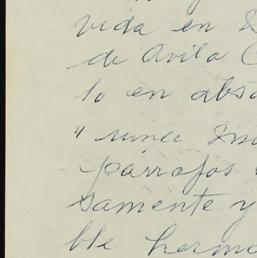 vida en
de Avila
lo en abso
" nunca
párrafos
samente y
ble hermo